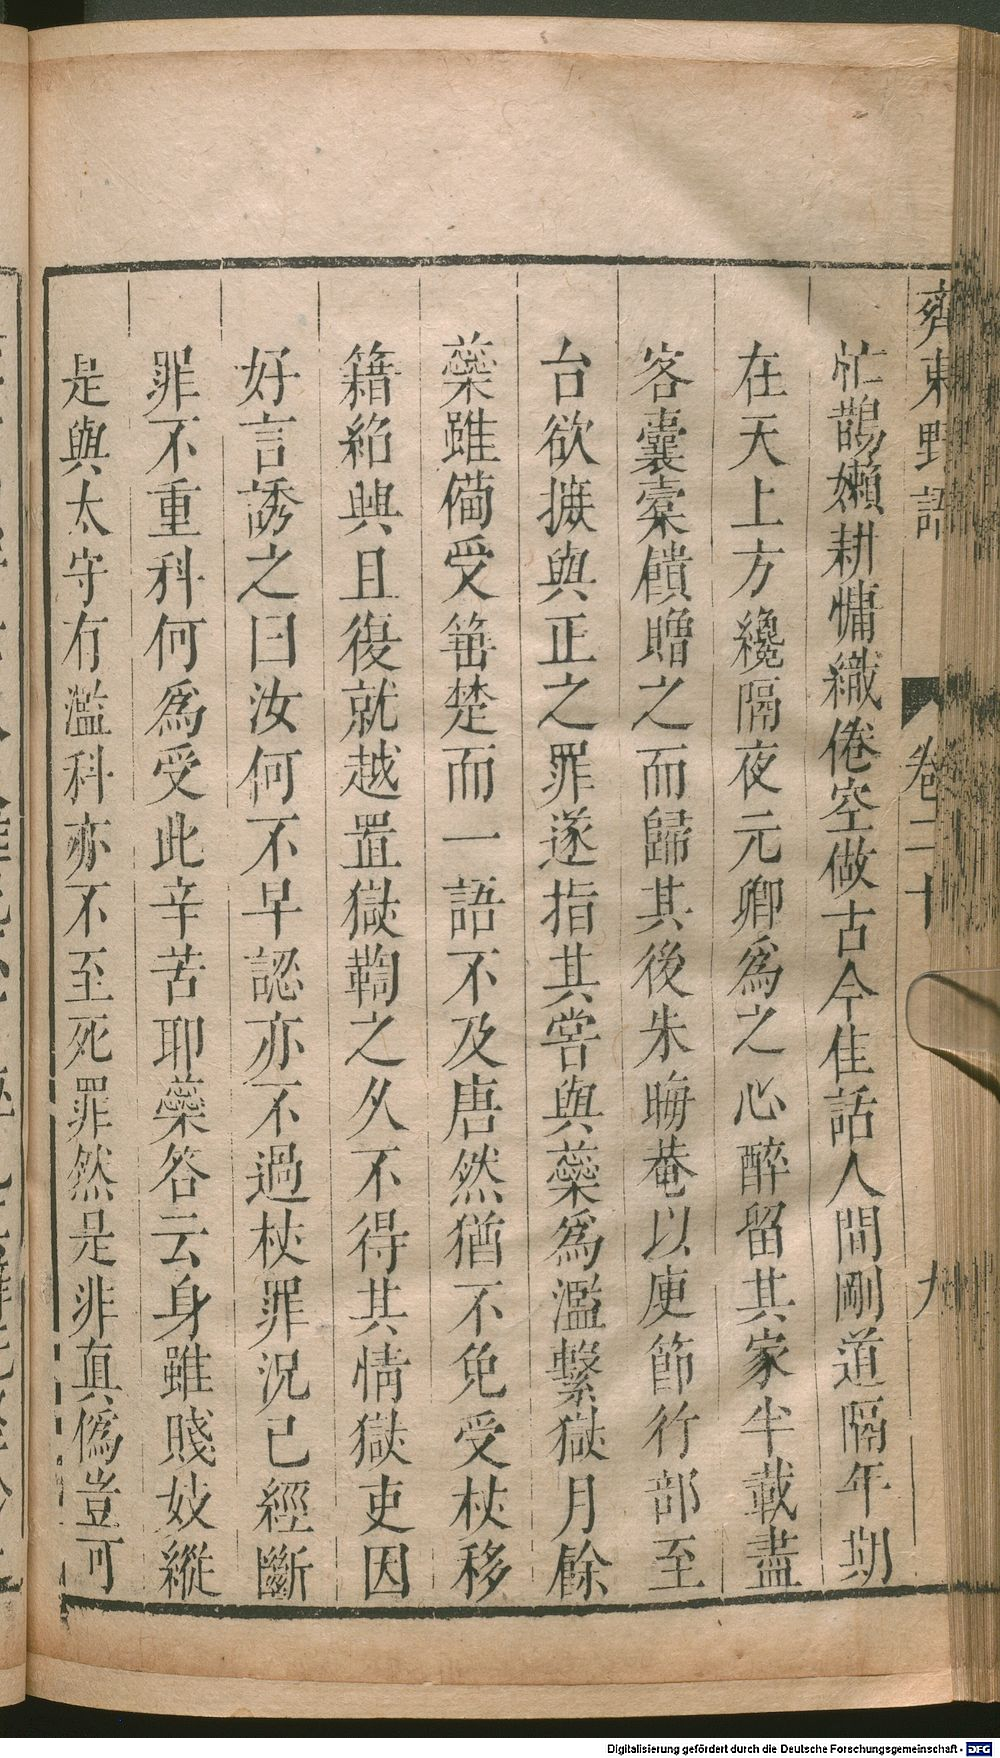 齊東野語
卷二十
九
忙鵲嬾耕慵織倦空做古今佳話人間剛道隔年期
在天上方纔隔夜元卿爲之心醉留其家半載盡
客囊槖饋贈之而歸其後朱晦菴以庾節行部至
台欲摭與正之罪遂指其嘗與蘂爲濫繫獄月餘
蘂雖備受箠楚而一語不及唐然猶不免受杖移
籍紹興且復就越置獄鞫之久不得其情獄吏因
好言誘之曰汝何不早認亦不過杖罪况已經斷
罪不重科何爲受此辛苦耶蘂答云身雖賤妓縱
是與太守有濫科亦不至死罪然是非真僞豈可
Digitalisierung gefördert durch die Deutsche Forschungsgemeinschaft - DFG